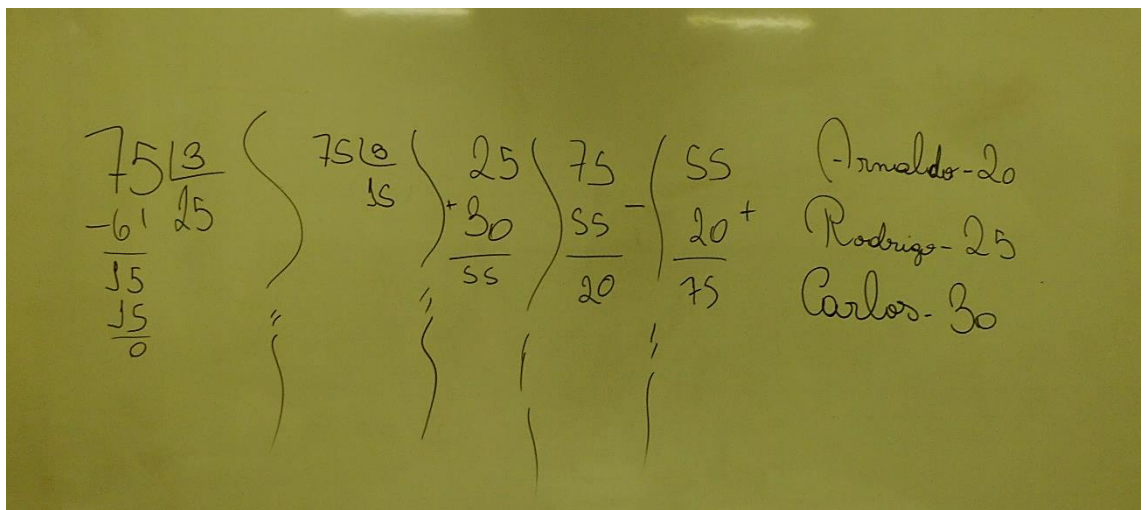 75|3
-6' 25
15
15
0
75|
15
25
+30
55
75
55 -
20
55
20 +
75
Arnaldo - 20
Rodrigo - 25
Carlos - 30